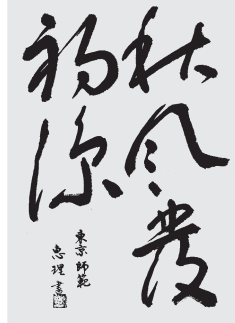 秋风發
初涼
東京師範
忠理書